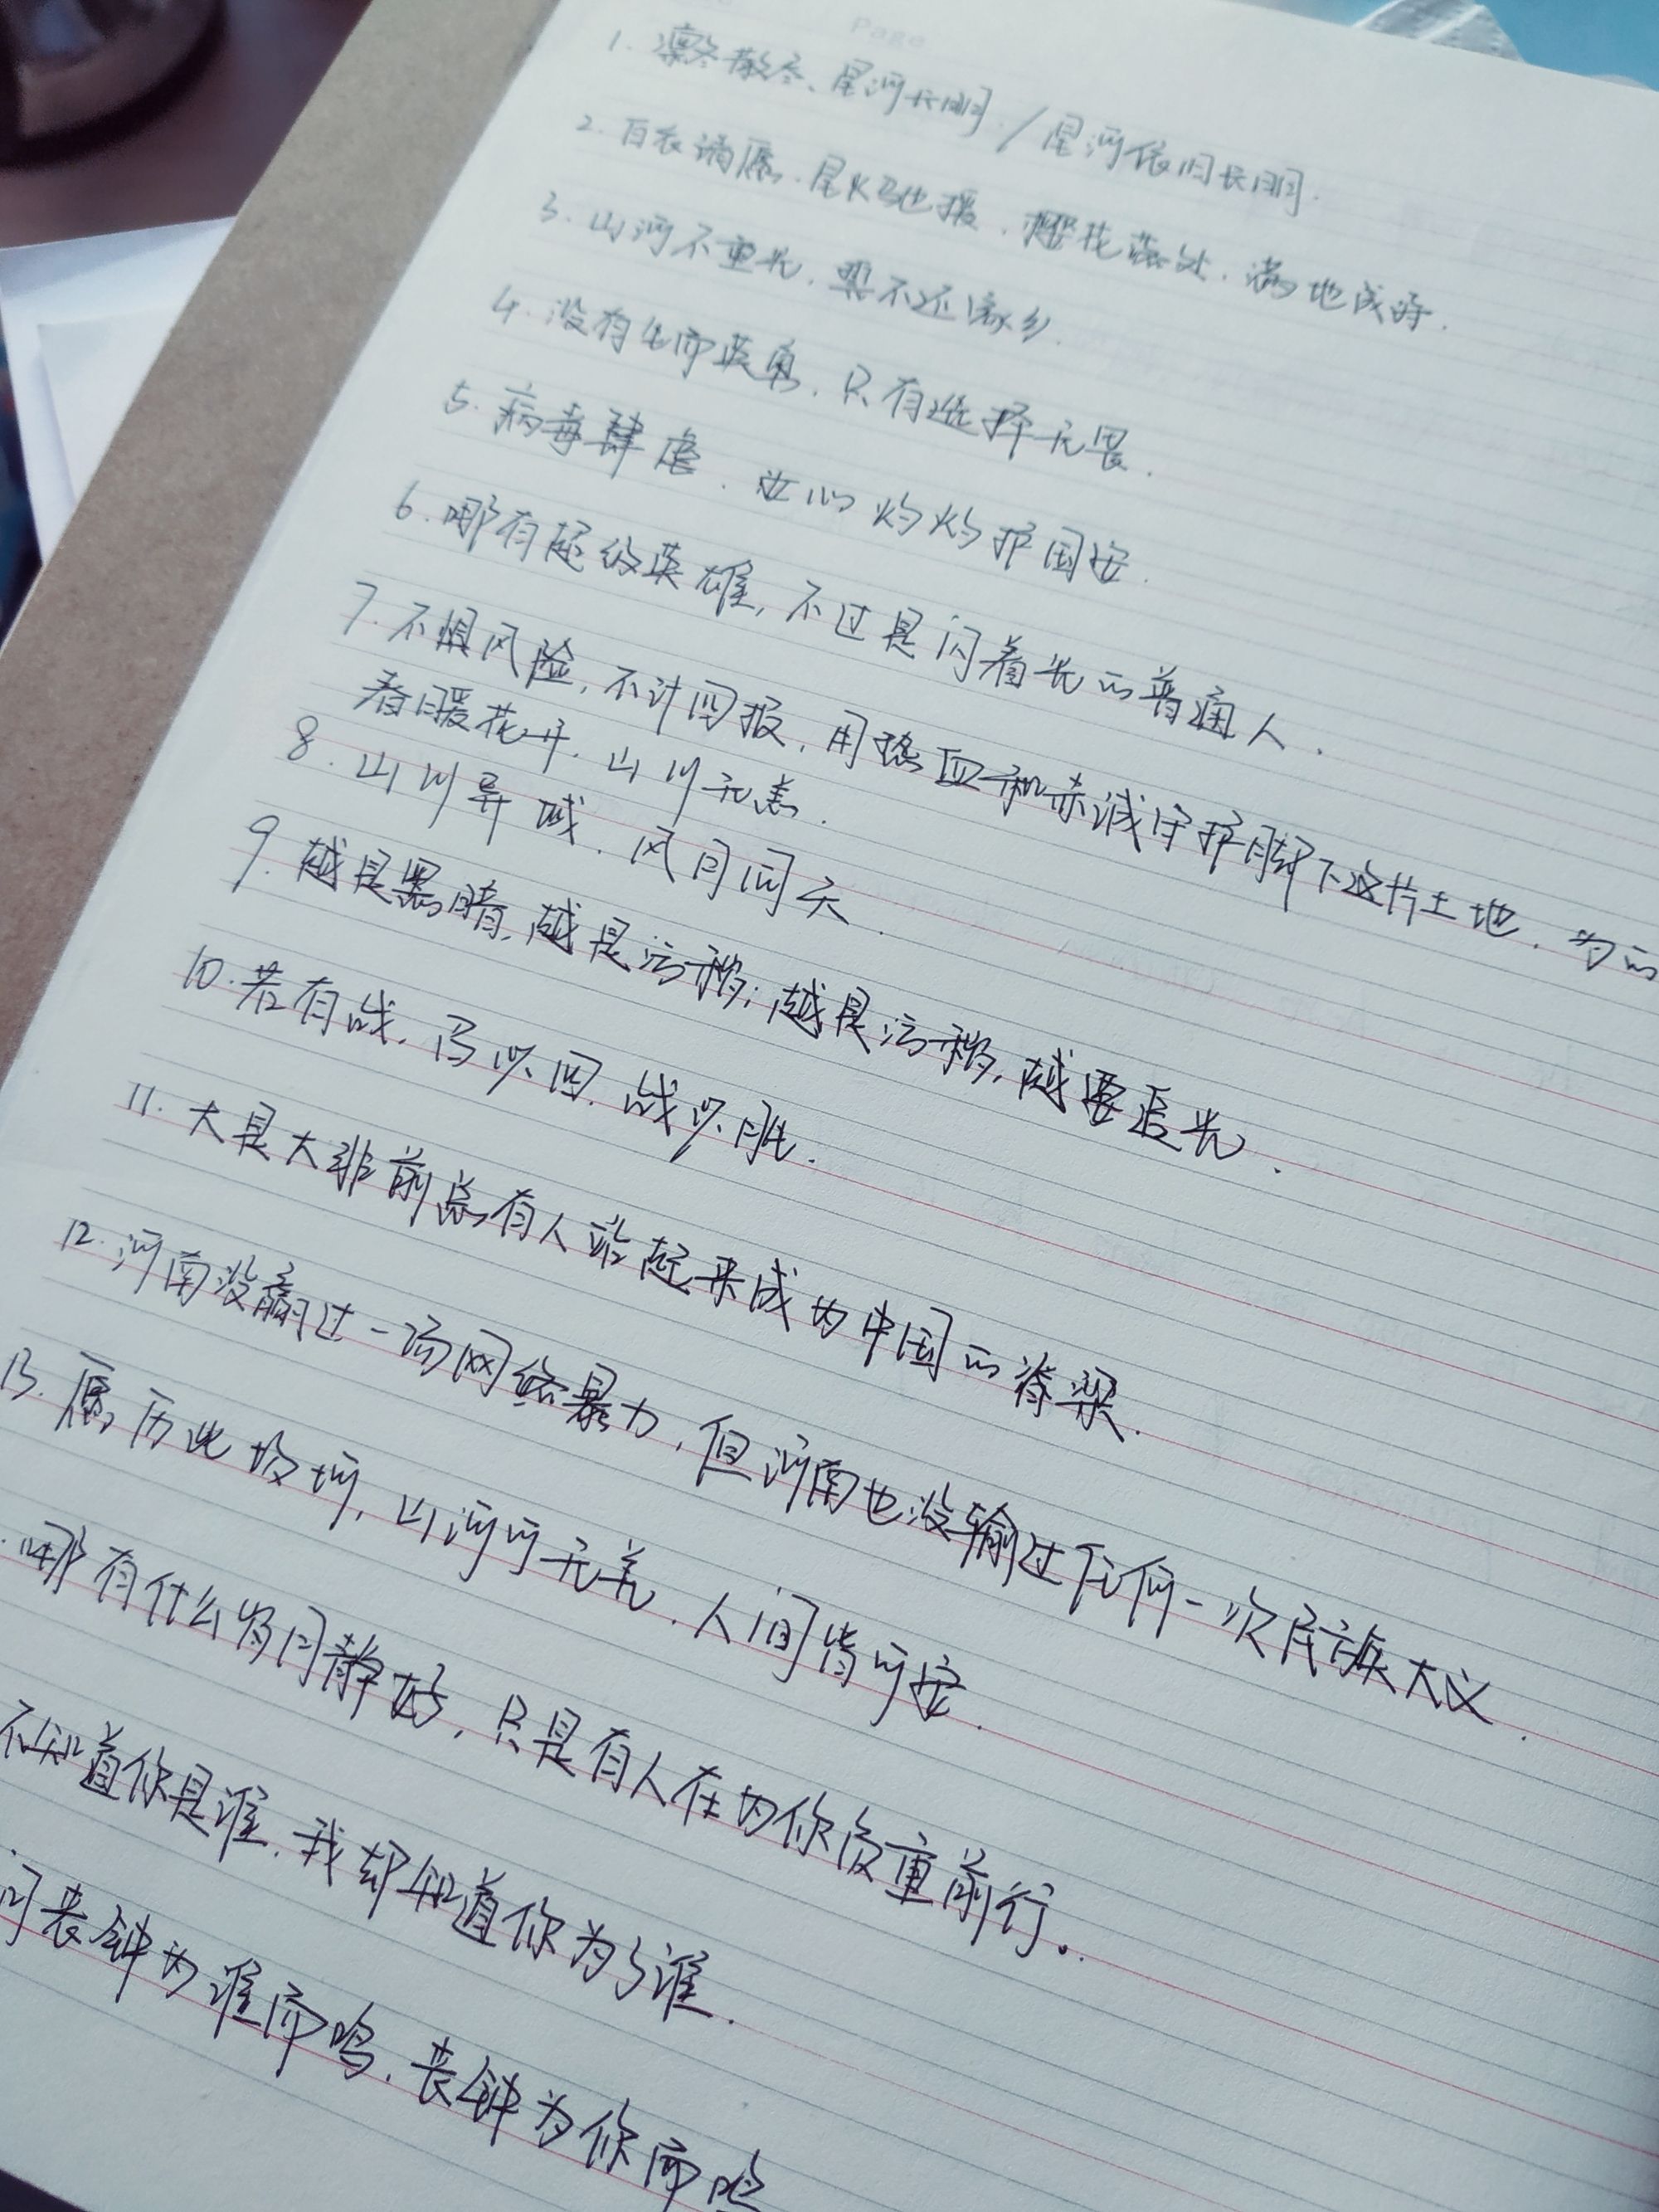 Page
1. 凛冬散尽、星河长明. / 星河依旧长明.
2. 白衣谪愿. 星火驰援. 樱花落处. 满地成诗.
3. 山河不重光. 誓不还家乡.
4. 没有生而英勇. 只有选择无畏.
5. 病毒肆虐. 此心灼灼护国安.
6. 哪有超级英雄, 不过是闪着光的普通人.
7. 不惧风险, 不计回报, 用热血和赤诚守护脚下这片土地. 为的
春日暖花开. 山川无恙.
8. 山川异域. 风月同天.
9. 越是黑暗, 越是污秽; 越是污秽, 越要追光.
10. 若有战. 召必回. 战必胜.
11. 大是大非前总有人站起来成为中国的脊梁.
12. 河南没赢过一场网络暴力, 但河南也没输过任何一次民族大义.
13. 愿历此坎坷, 山河可无恙. 人间皆可安.
. 哪有什么岁月静好, 只是有人在为你负重前行.
不知道你是谁. 我却知道你为了谁.
问丧钟为谁而鸣. 丧钟为你而鸣